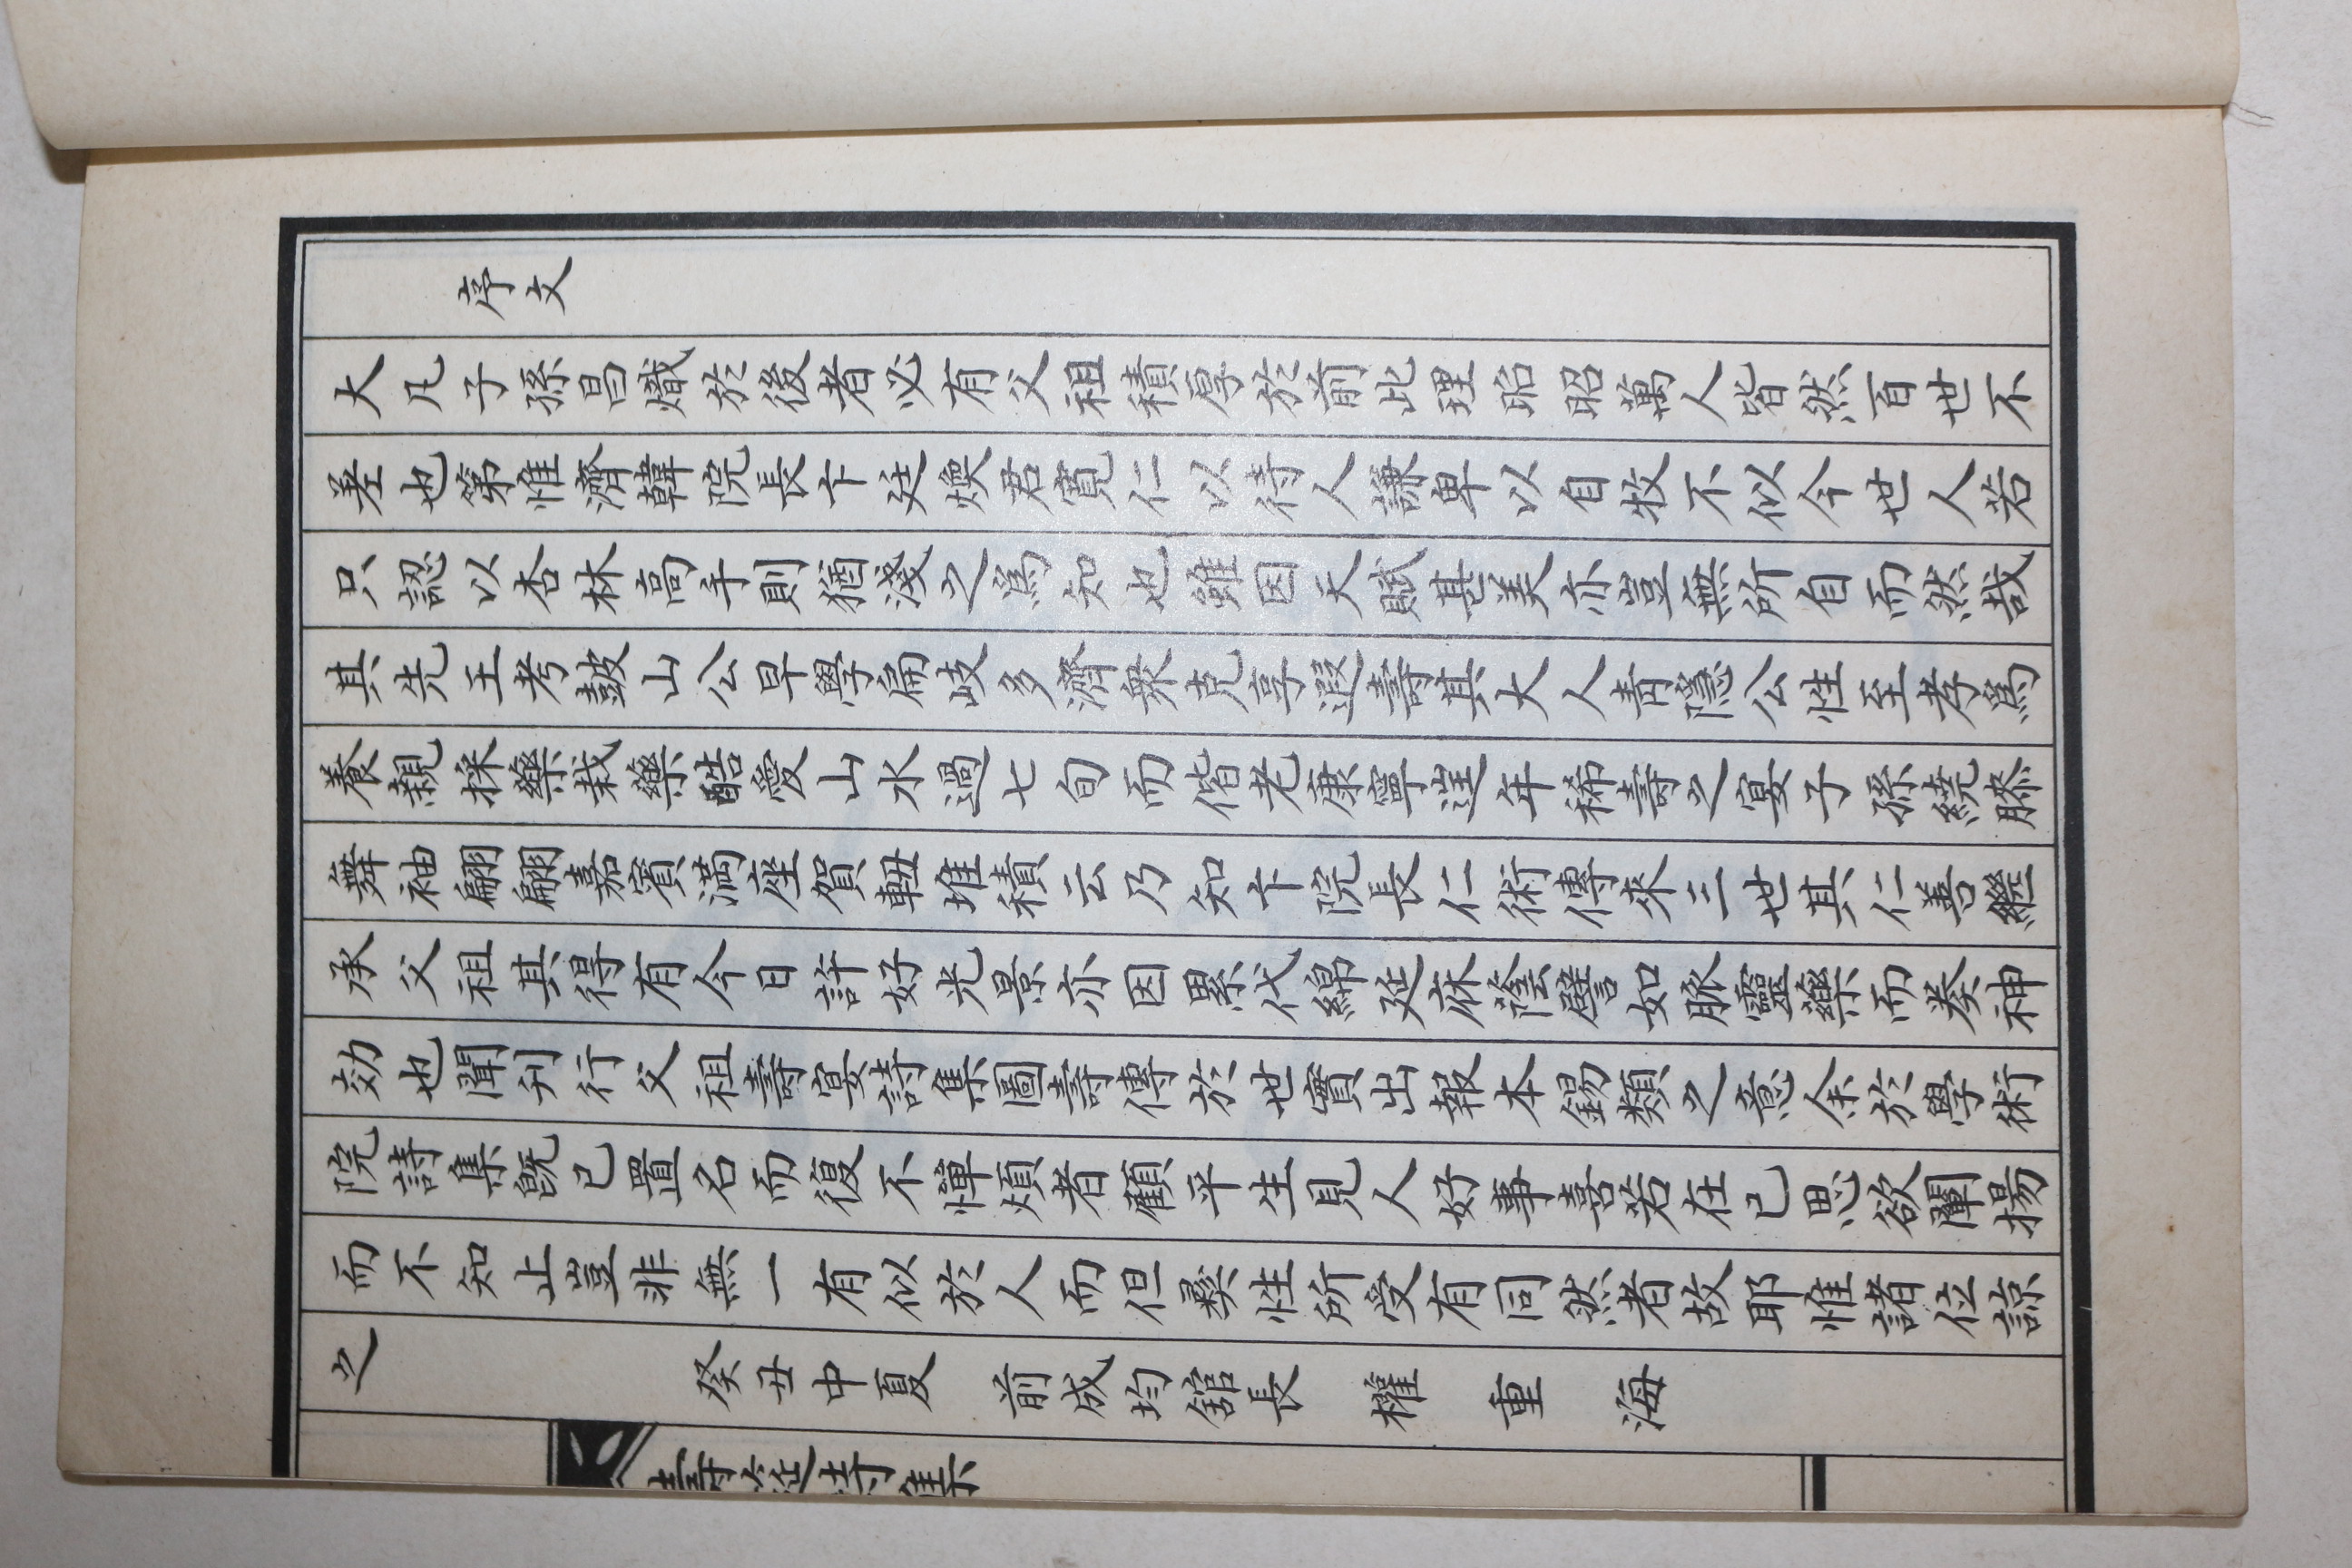 序文
大凡子孫昌熾於後者必有父祖積厚於前此理昭昭萬人皆然百世不
差也第惟濟韓院長卞廷煥君寬仁以待人謙卑以自牧不似今世人若
只認以杏林高手則猶淺之爲知也雖因天賦甚美亦豈無所自而然哉
其先王考鼓山公早學扁岐多濟衆克享遐壽其大人靑隱公性至孝爲
養親採藥栽藥酷愛山水過七旬而偕老康寧迬年稀壽之宴子孫繞膝
舞袖翩翩嘉賓滿座賀軸堆積云乃知卞院長仁術傳來三世其仁善繼
承父祖其得有今日許好光景亦因累代綿延庥蔭譬如脈靈藥而奏神
効也聞刊行父祖壽宴詩集圖壽傳於世實出報本錫類之意余於學術
院詩集旣已置名而復不憚煩者顧平生見人好事喜若在已思欲闡揚
而不知止豈非無一有似於人而但彛性所受有同然者故耶惟諸位諒
之 癸丑中夏 前成均館長 權重海
壽筵詩集